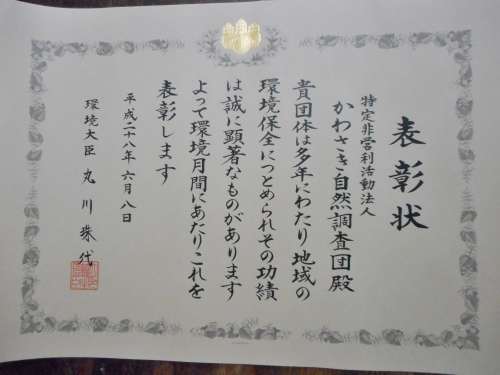 表彰状
特定非営利活動法人
かわさき自然調査団殿
貴団体は多年にわたり地域の
環境保全につとめられその功績
は誠に顕著なものがあります
よって環境月間にあたりこれを
表彰します
平成二十八年六月八日
環境大臣 丸川珠代